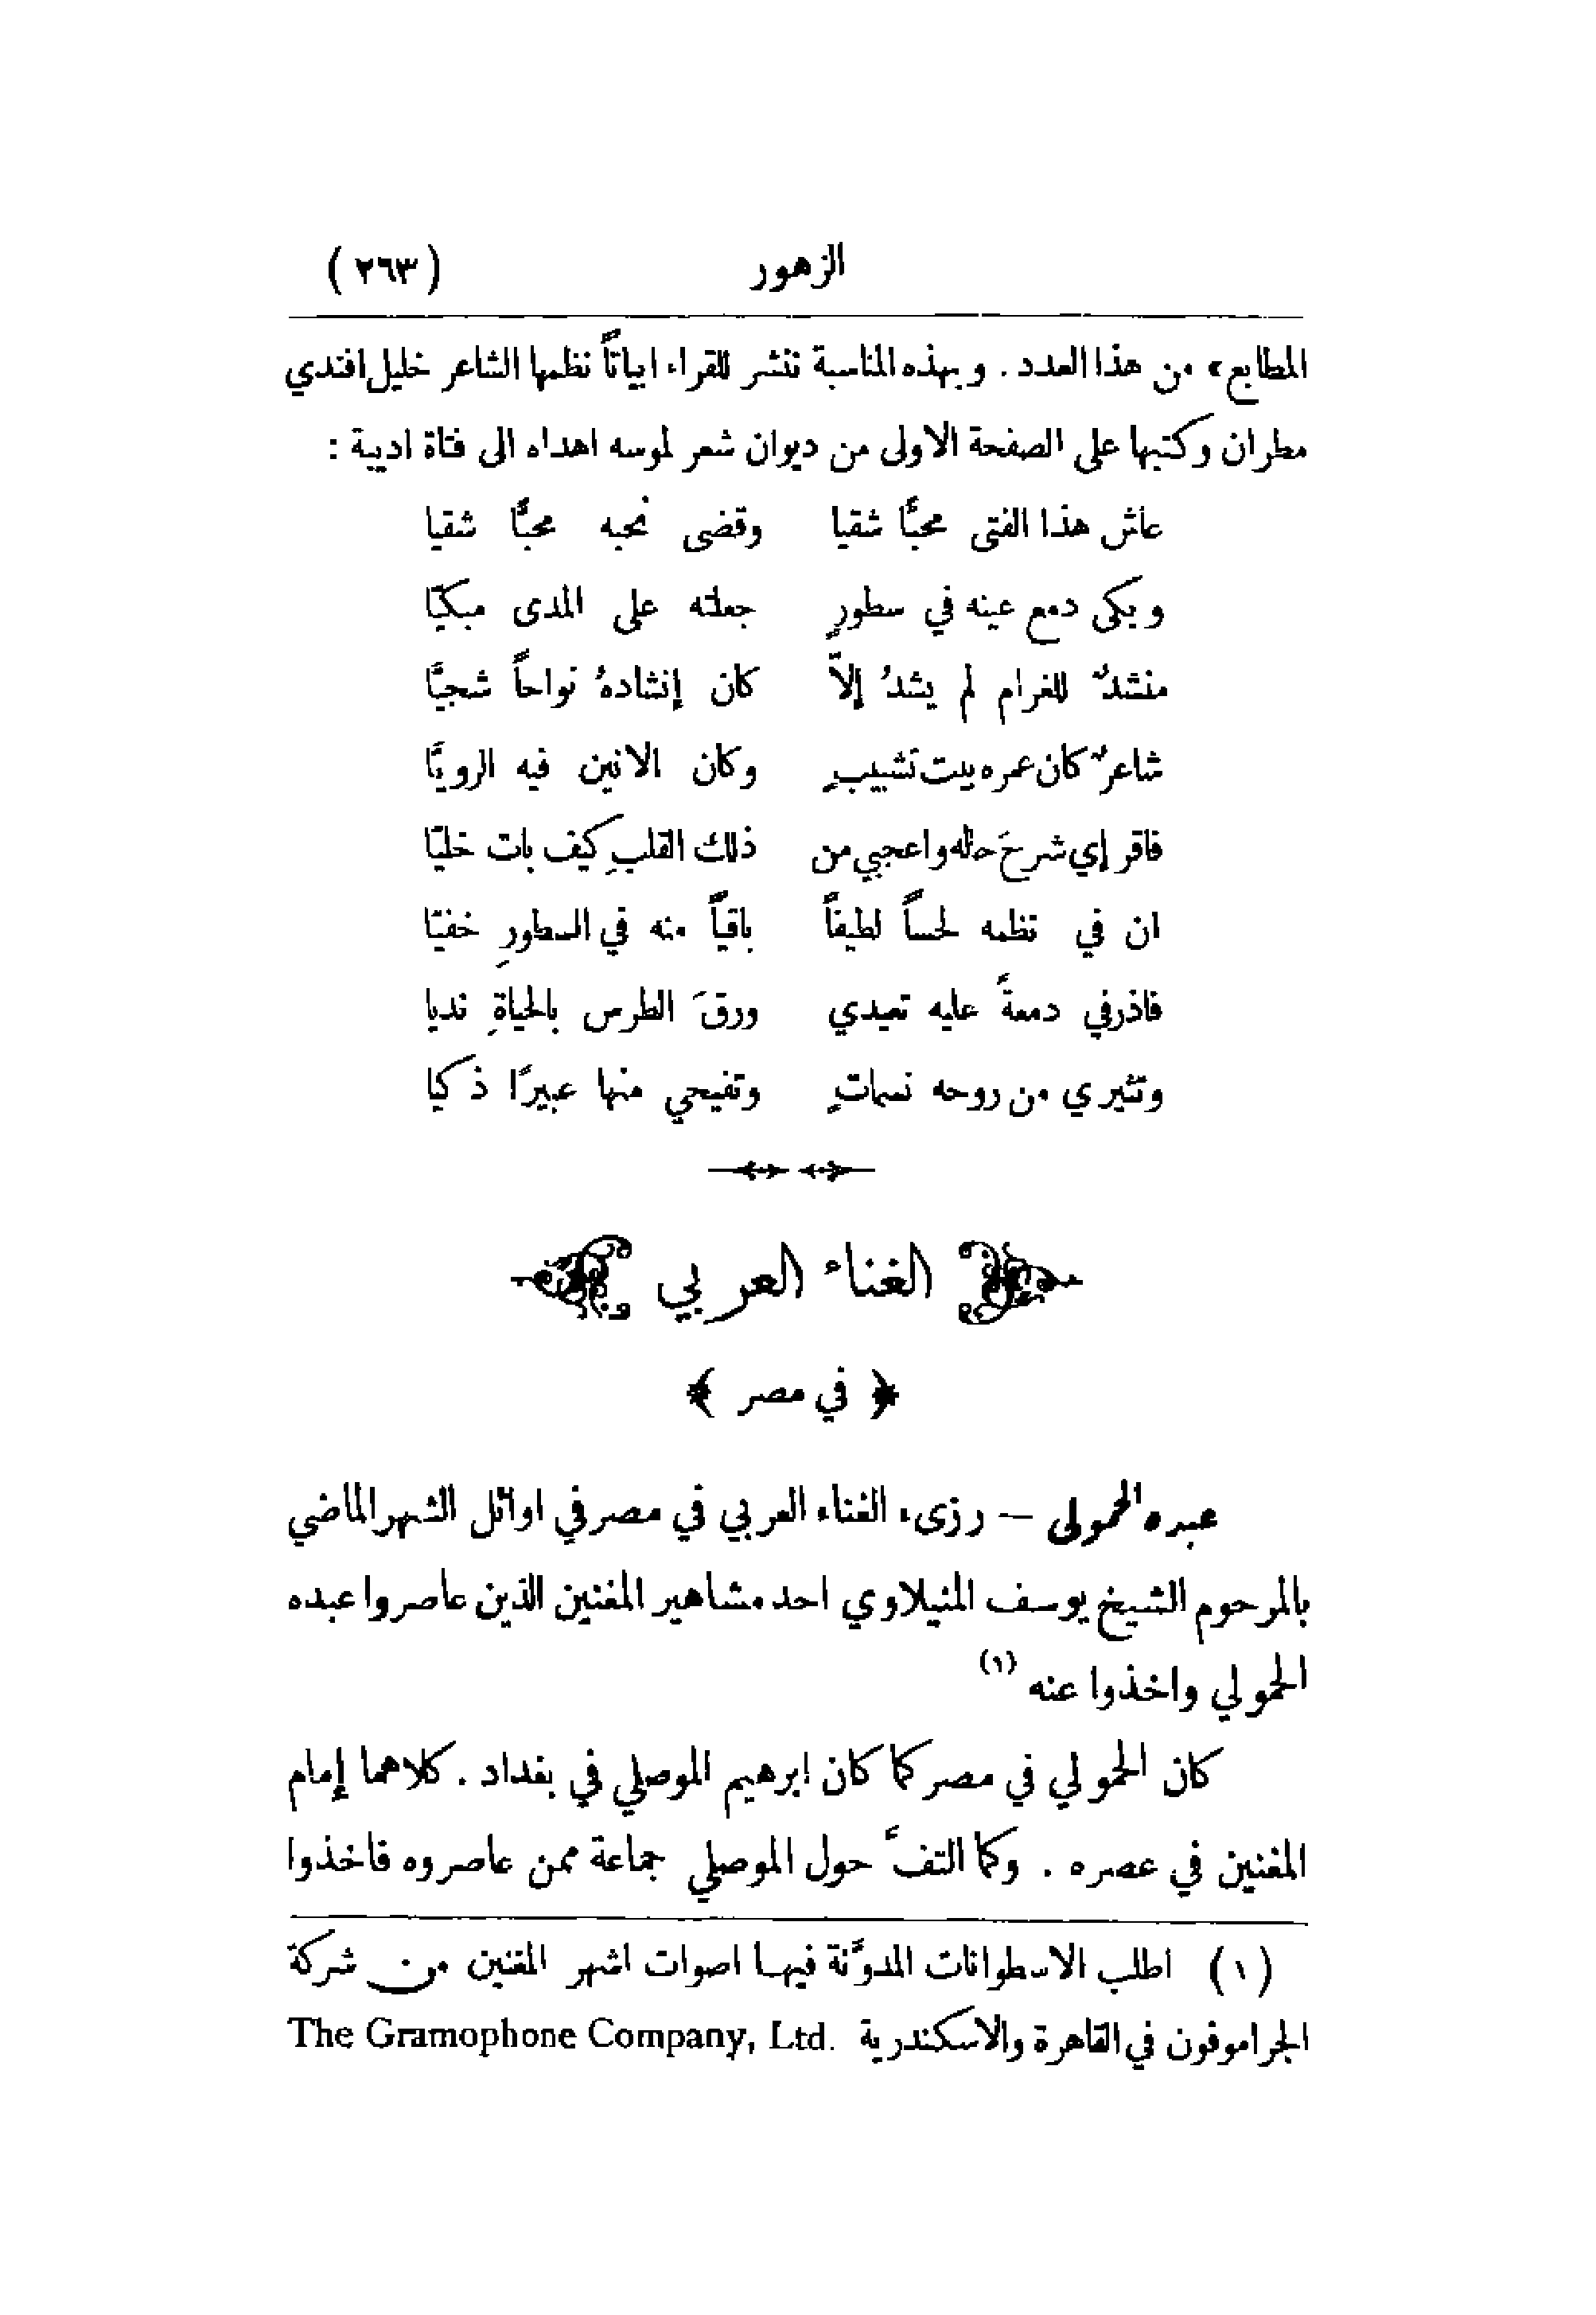 الزهور (٢٦٣)
المطابع» من هذا العدد . وبهذه المناسبة ننشر للقراء ابياتاً نظمها الشاعر خليل افندي
مطران وكتبها على الصفحة الاولى من ديوان شعر لموسه اهداه الى فتاة اديبة :
عاش هذا الفتى محبًّا شقيا وقضى نحبه محبًّا شقيا
وبكى دمع عينه في سطورٍ جعلته على المدى مبكيّا
منشدٌ للغرام لم يشدُ إلاّ كان إنشادهُ نواحاً شجيَّا
شاعرٌ كان عمره بيت تشبيبٍ وكان الانين فيه الرويَّا
فاقرإي شرحَ حاله واعجبي من ذلك القلبِ كيف بات خليّا
ان في نظمه لحساً لطيفاً باقياً منه في السطورِ خفيّا
فاذرفي دمعةً عليه تعيدي ورقَ الطرس بالحياةِ نديا
وتثيري من روحه نسماتٍ وتفيحي منها عبيرًا ذكيا
الغناء العربي
﴿ في مصر ﴾
عبده الحمولى – رزىء الغناء العربي في مصر في اوائل الشهر الماضي
بالمرحوم الشيخ يوسف المنيلاوي احد مشاهير المغنين الذين عاصروا عبده
الحمولي واخذوا عنه (١)
كان الحمولي في مصر كما كان ابرهيم الموصلي في بغداد . كلاهما إمام
المغنين في عصره . وكما التفَّ حول الموصلي جماعة ممن عاصروه فاخذوا
(١) اطلب الاسطوانات المدوَّنة فيها اصوات اشهر المغنين من شركة
الجراموفون في القاهرة والاسكندرية The Gramophone Company, Ltd.